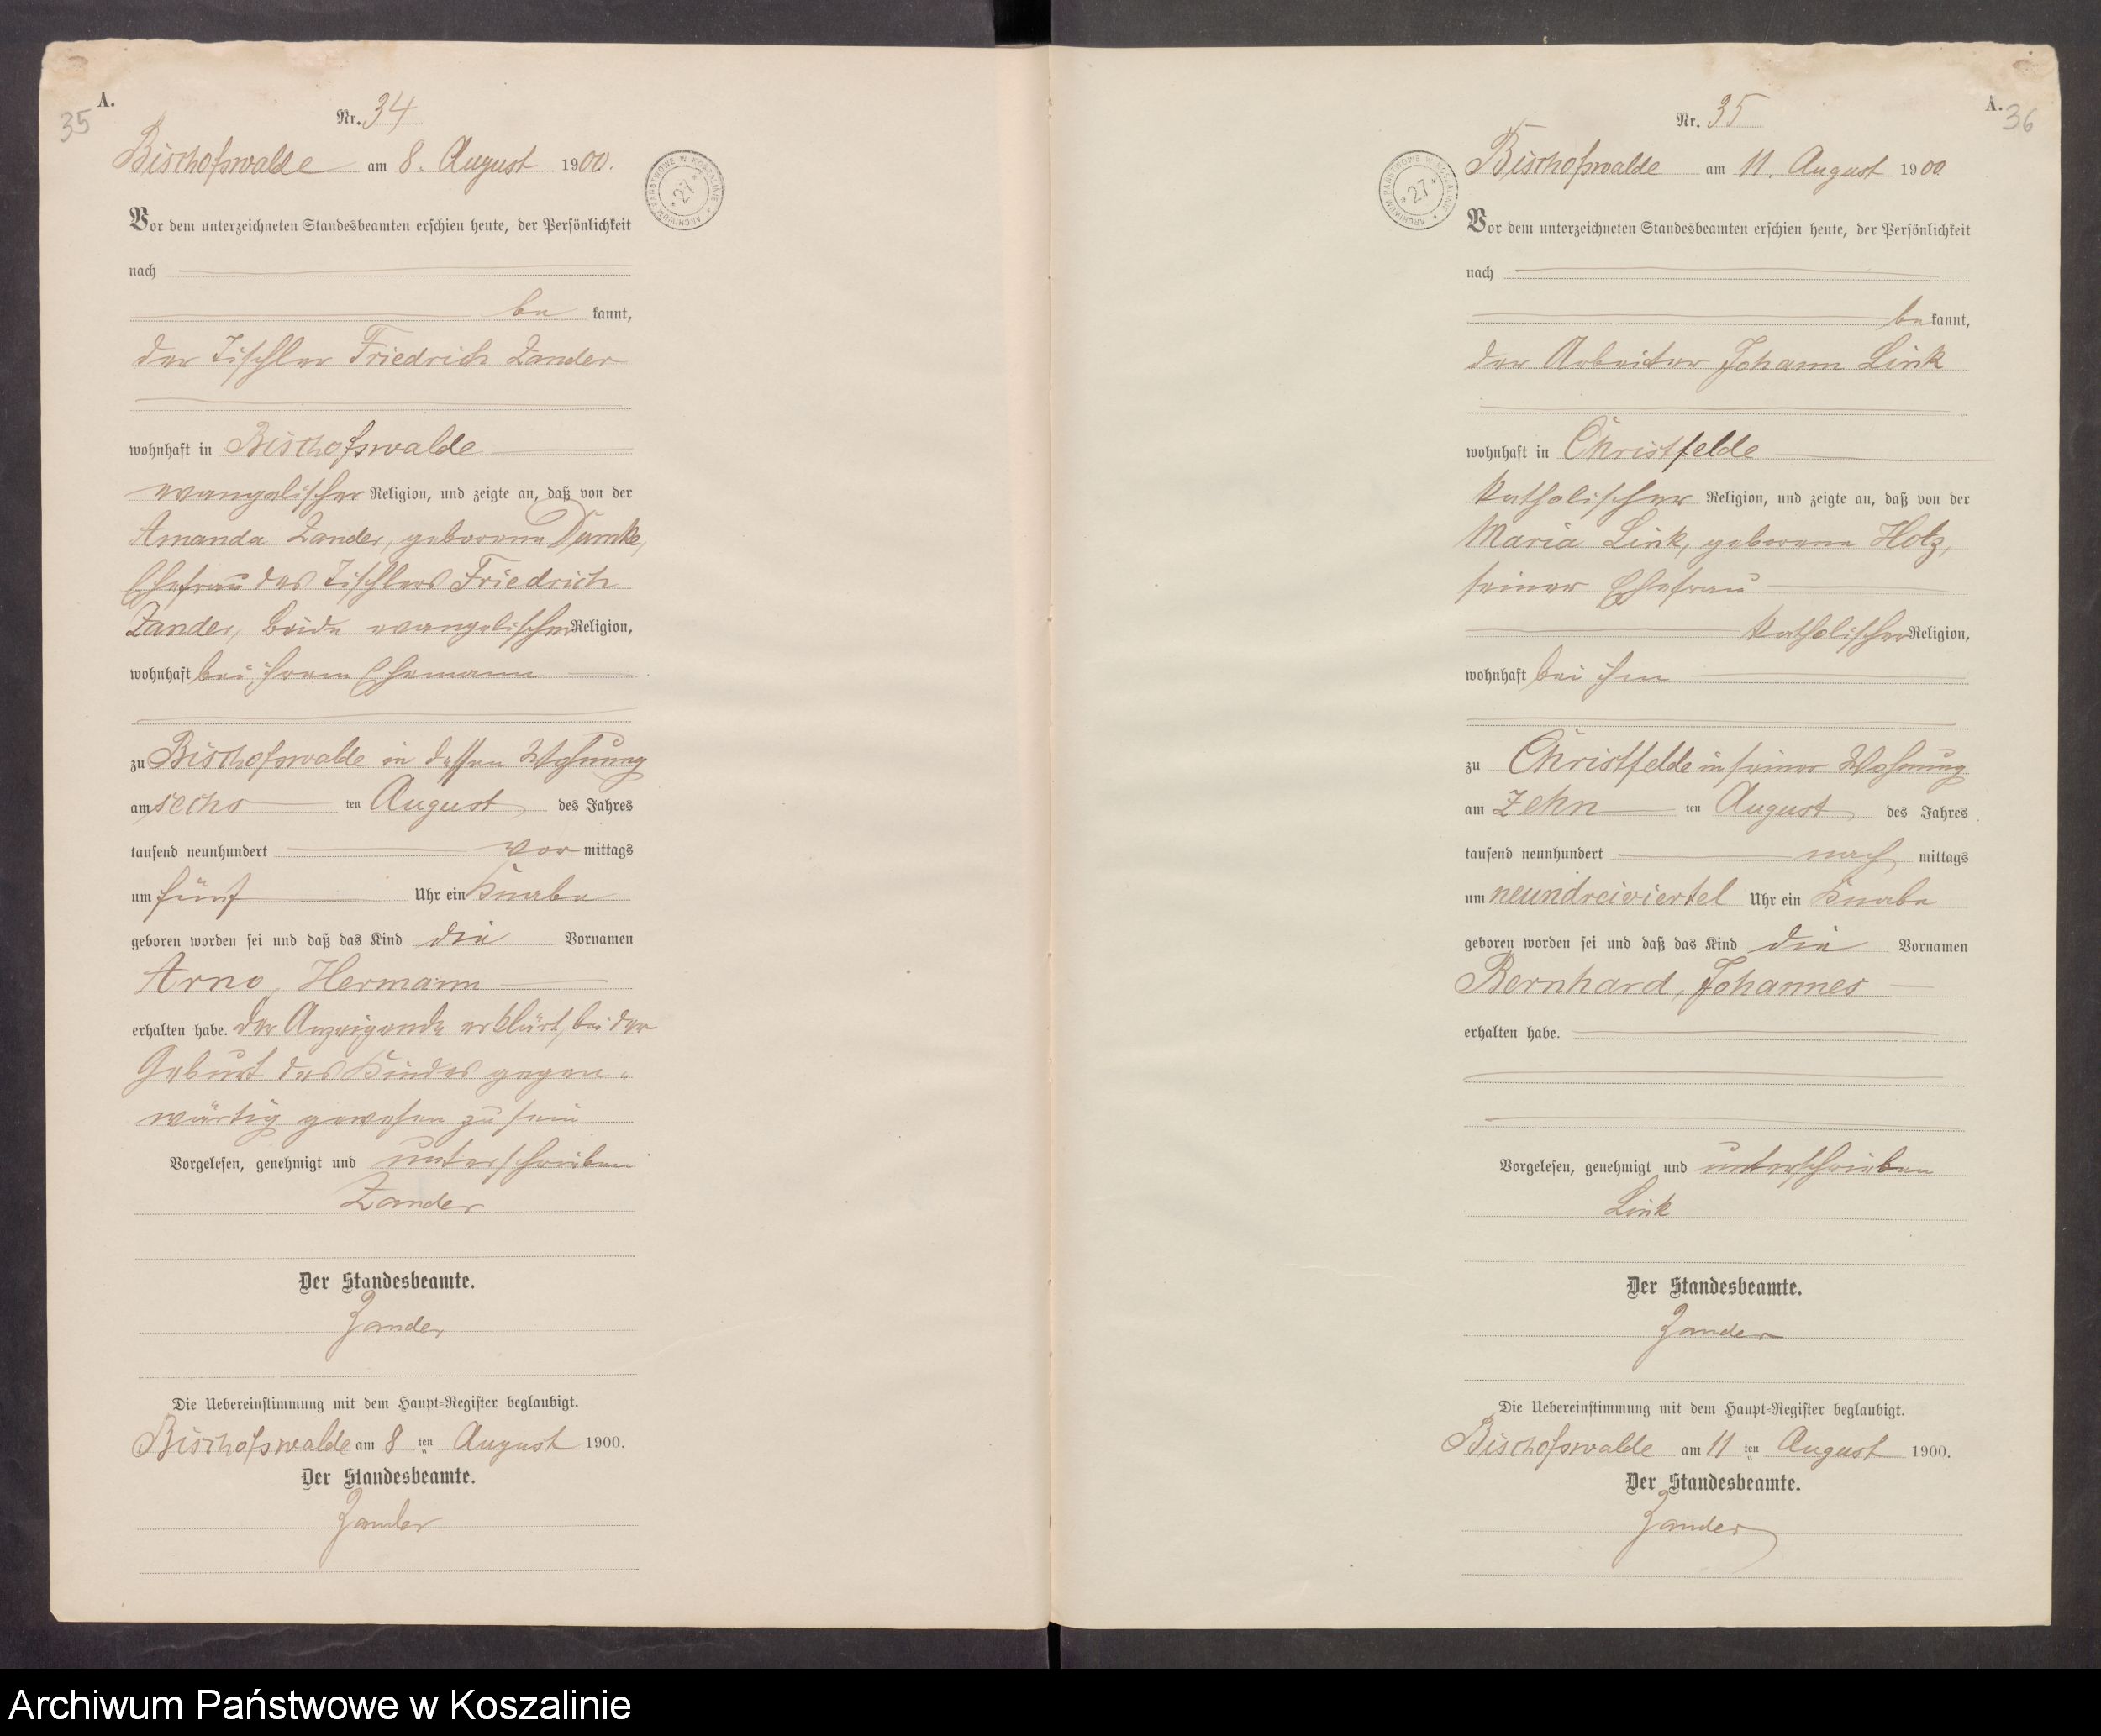 A.
35
Nr. 34
Bischofswalde am 8. August 1900.
ARCHIWUM PAŃSTWOWE W KOSZALINIE
* 27 *
Vor dem unterzeichneten Standesbeamten erschien heute, der Persönlichkeit
nach
be kannt,
der Tischler Friedrich Zander
wohnhaft in Bischofswalde
evangelischer Religion, und zeigte an, daß von der
Amanda Zander, geborene
Ehefrau des Tischlers Friedrich
Zander, beide evangelischer Religion,
wohnhaft bei ihrem Ehemann
zu Bischofswalde in dessen Wohnung
am sechs ten August des Jahres
tausend neunhundert vor mittags
um fünf Uhr ein Knabe
geboren worden sei und daß das Kind die Vornamen
Arno, Hermann
erhalten habe. Der Anzeigende erklärt, bei der
Geburt des Kindes gegen-
wärtig gewesen zu sein
Vorgelesen, genehmigt und unterschrieben
Zander
Der Standesbeamte.
Zander
Die Uebereinstimmung mit dem Haupt-Register beglaubigt.
Bischofswalde am 8 ten August 1900.
Der Standesbeamte.
Zander
A.
36
Nr. 35
Bischofswalde am 11. August 1900
ARCHIWUM PAŃSTWOWE W KOSZALINIE
* 27 *
Vor dem unterzeichneten Standesbeamten erschien heute, der Persönlichkeit
nach
be kannt,
der Arbeiter Johann Link
wohnhaft in Christfelde
katholischer Religion, und zeigte an, daß von der
Maria Link, geborene Holz,
seiner Ehefrau
katholischer Religion,
wohnhaft bei ihm
zu Christfelde in seiner Wohnung
am zehn ten August des Jahres
tausend neunhundert nach mittags
um neundreiviertel Uhr ein Knabe
geboren worden sei und daß das Kind die Vornamen
Bernhard, Johannes
erhalten habe.
Vorgelesen, genehmigt und unterschrieben
Link
Der Standesbeamte.
Zander
Die Uebereinstimmung mit dem Haupt-Register beglaubigt.
Bischofswalde am 11 ten August 1900.
Der Standesbeamte.
Zander
Archiwum Państwowe w Koszalinie